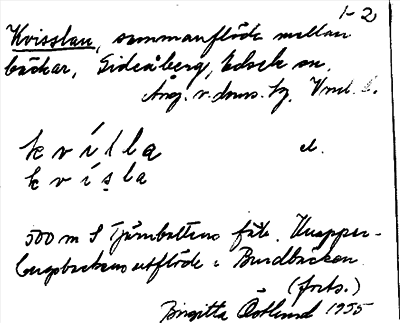 1-2
Kvisslan, sammanflöde mellan
bäckar, Gideåberg, Edsele sn.
Ång. v. doms. tg. Vnl.
kvílla el.
kvísla
500 m S Tjärnbottens fäb. Knapper-
bergsbäckens utflöde i Burdbäcken
(forts.)
Birgitta Östlund 1955